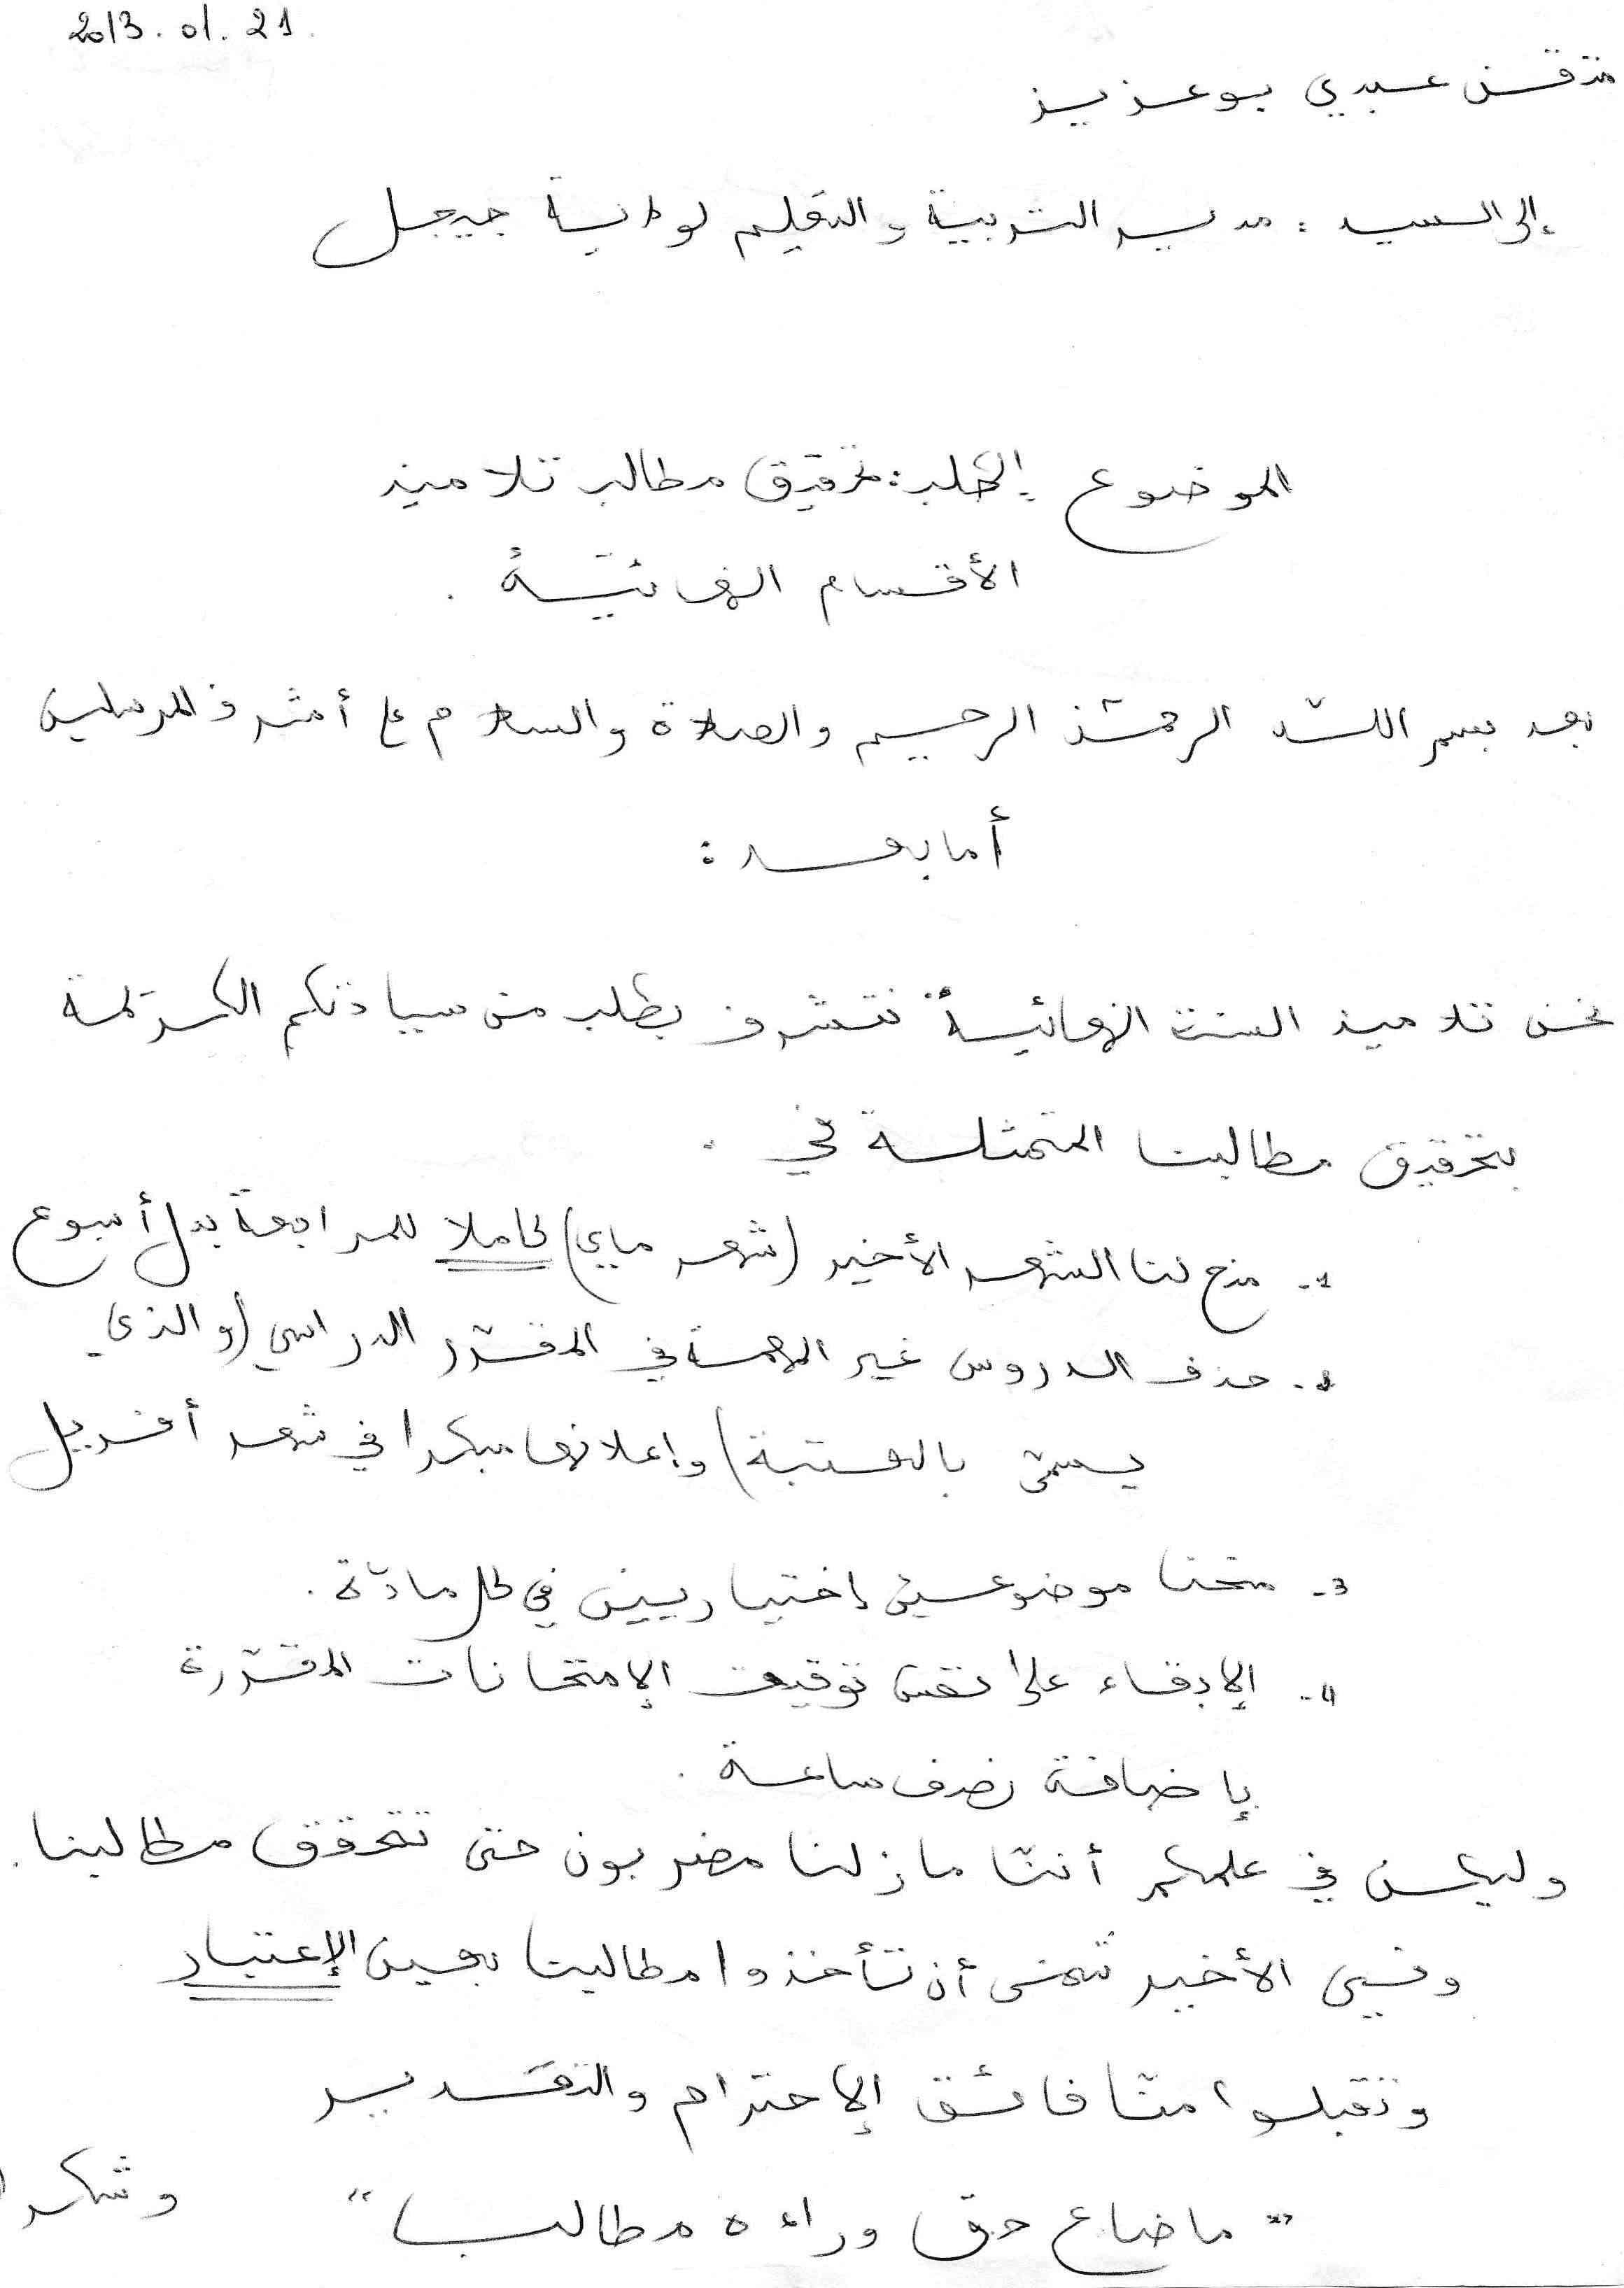 2013.01.21
متقن عبدي بوعزيز
إلى السيد : مدير التربية والتعليم لولاية جيجل
الموضوع : تحقيق مطالب تلاميذ
الأقسام النهائية .
بعد بسم الله الرحمن الرحيم والصلاة والسلام على أشرف المرسلين
أما بعد :
نحن تلاميذ السنة النهائية نتشرف بطلب من سيادتكم المحترمة
بتحقيق مطالبنا المتمثلة في :
1- منح لنا الشهر الأخير (شهر ماي) كاملا للمراجعة بدل أسبوع
2- حذف الدروس غير المهمة في المقرر الدراسي (والذي
يسمى بالعتبة) وإعلانها مبكرا في شهر أفريل
3- منحنا موضوعين إختياريين في كل مادة .
4- الإبقاء على نفس توقيت الإمتحانات المقررة
بإضافة نصف ساعة .
وليكن في علمكم أننا مازلنا مضربون حتى تتحقق مطالبنا .
وفي الأخير نتمنى أن تأخذوا مطالبنا بعين الإعتبار
وتقبلوا منا فائق الإحترام والتقدير
وشكرا
"ما ضاع حق وراءه مطالب"